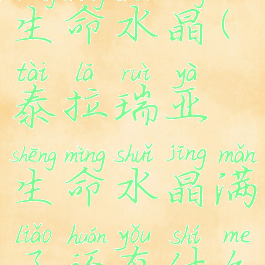 生命水晶(
tài lā ruì yà
泰拉瑞亚
shēng mìng shuǐ jīng mǎn
生命水晶满
liǎo huán yǒu shí me
了还有什么